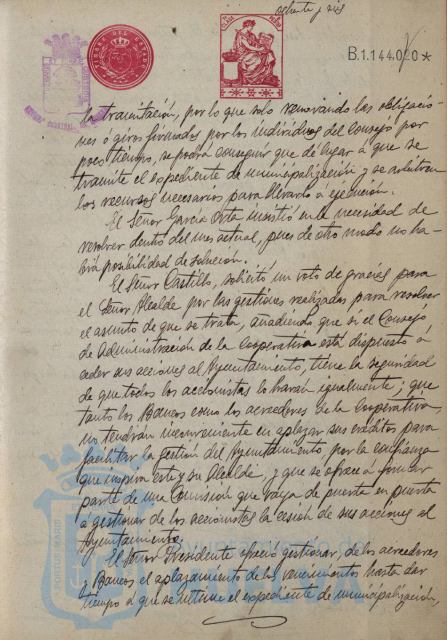 ochenta y seis
TIMBRE DEL ESTADO
B.1.144.020*
la tramitación, por lo que solo renovando las obligacio-
nes ó giros firmados por los individuos del Consejo por
poco tiempo, se podrá conseguir que dé lugar á que se
tramite el expediente de municipalización y se arbitren
los recursos necesarios para llevarlo á ejecución.
El Señor García Orta insistió en la necesidad de
resolver dentro del mes actual, pues de otro modo no ha-
brá posibilidad de solución.
El Señor Castillo, solicitó un voto de gracias para
el Señor Alcalde por las gestiones realizadas para resolver
el asunto de que se trata, añadiendo que si el Consejo
de Administración de la Cooperativa está dispuesto á
ceder sus acciones al Ayuntamiento, tiene la seguridad
de que todos los accionistas lo harán igualmente; que
tanto los Bancos como los acreedores de la Cooperativa,
no tendrán inconveniente en aplazar sus créditos para
facilitar la gestión del Ayuntamiento, por la confianza
que inspira este y su Alcalde, y que se ofrece á formar
parte de una Comisión que vaya de puerta en puerta
a gestionar de los accionistas la cesión de sus acciones al
Ayuntamiento.
El Señor Presidente ofreció gestionar, de los acreedores
y Bancos el aplazamiento de los vencimientos hasta dar
tiempo á que se ultime el expediente de municipalización,